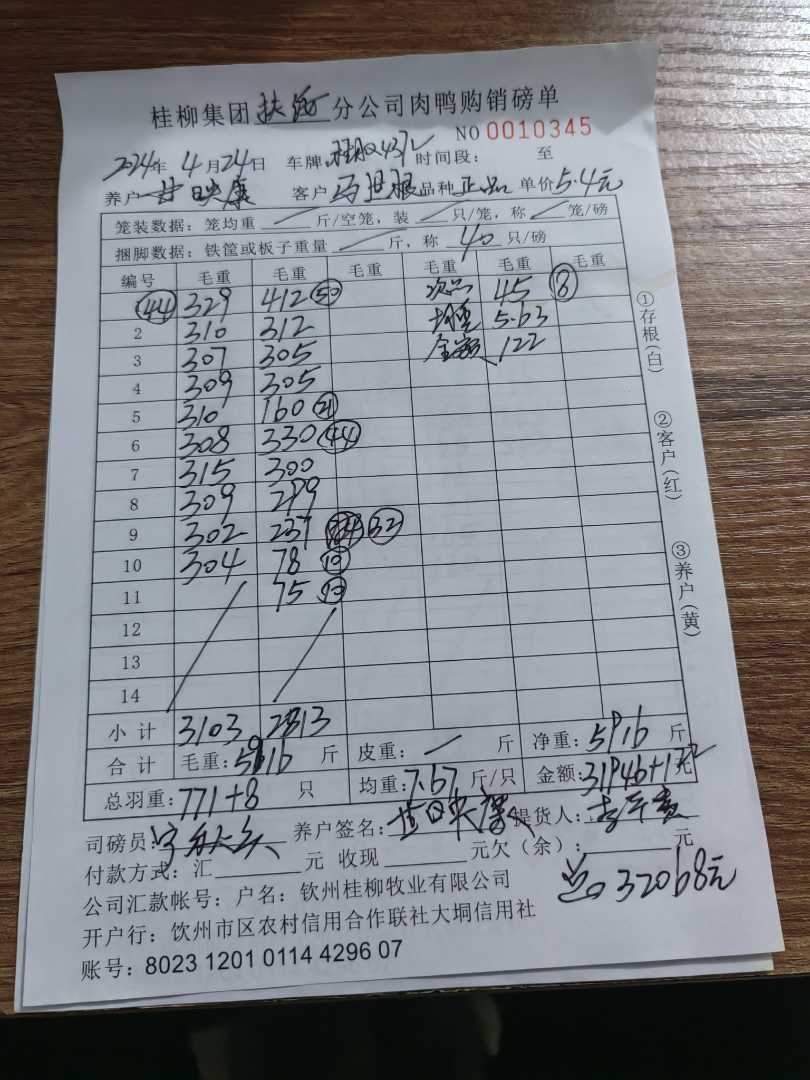 桂柳集团扶绥分公司肉鸭购销磅单
NO 0010345
2024年 4月24日 车牌: 时间段: 至
养户 甘映康 客户 品种 正品 单价5.4元
笼装数据: 笼均重 / 斤/空笼, 装 / 只/笼, 称 / 笼/磅
捆脚数据: 铁筐或板子重量 / 斤, 称 40 只/磅
编号 毛重 毛重 毛重 毛重 毛重 毛重
44 329 412 50 次品 45 8
2 310 312 均重 5.63
3 307 305 金额 122
4 309 305
5 310 160 21
6 308 330 44
7 315 300
8 309 299
9 302 237 32
10 304 78 10
11 75 10
12
13
14
小计 3103 2813
合计 毛重: 5916 斤 皮重: / 斤 净重: 5916 斤
总羽重: 771+8 只 均重: 7.67 斤/只 金额: 31946+122元
司磅员: 养户签名: 甘映康 提货人:
付款方式: 汇 元 收现 元欠(余): 元
总 32068元
公司汇款帐号: 户名: 钦州桂柳牧业有限公司
开户行: 钦州市区农村信用合作联社大垌信用社
账号: 8023 1201 0114 4296 07
①存根(白)
②客户(红)
③养户(黄)